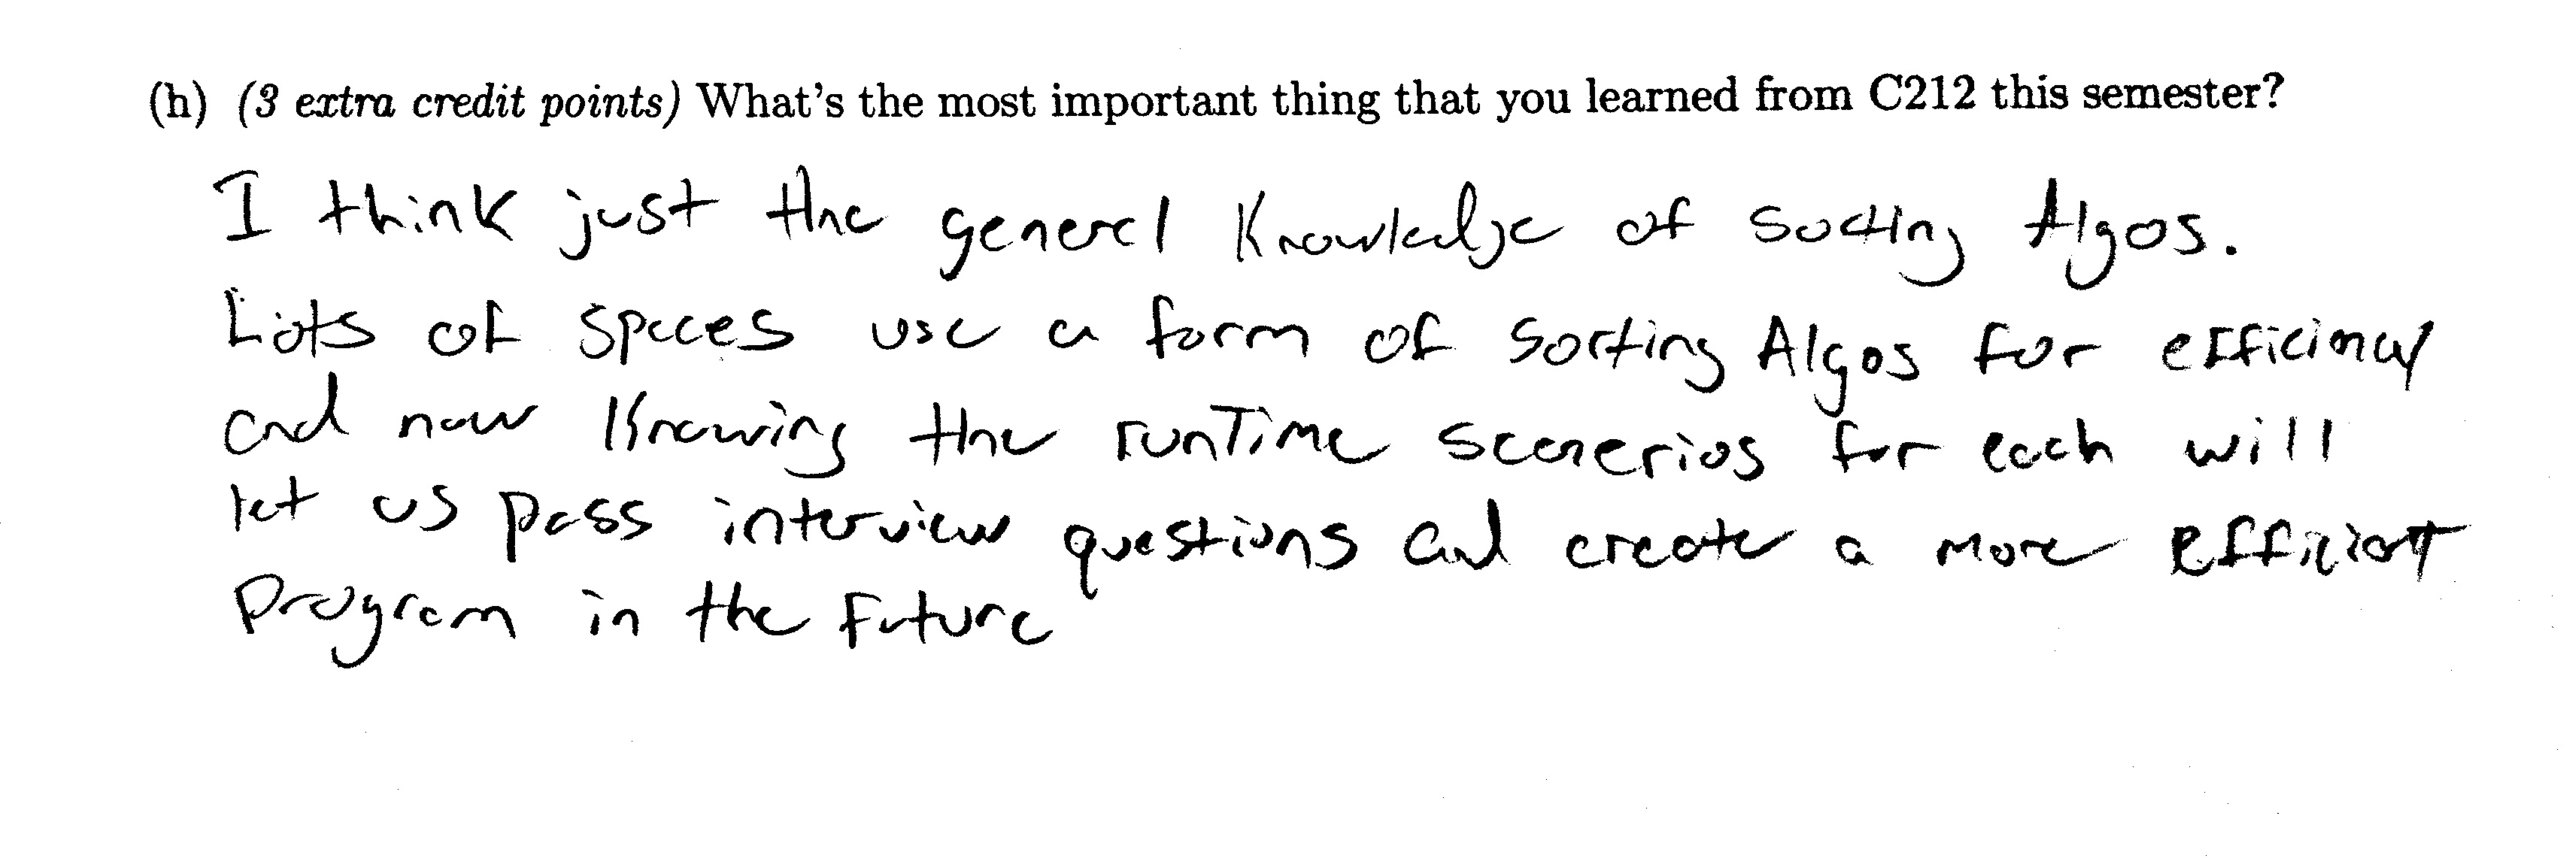 (h) (3 extra credit points) What's the most important thing that you learned from C212 this semester?
I think just the general Knowledge of sorting Algos.
Lots of spaces use a form of sorting Algos for efficincy
and now knowing the runTime scenerios for each will
let us pass interview questions and create a more efficient
program in the future